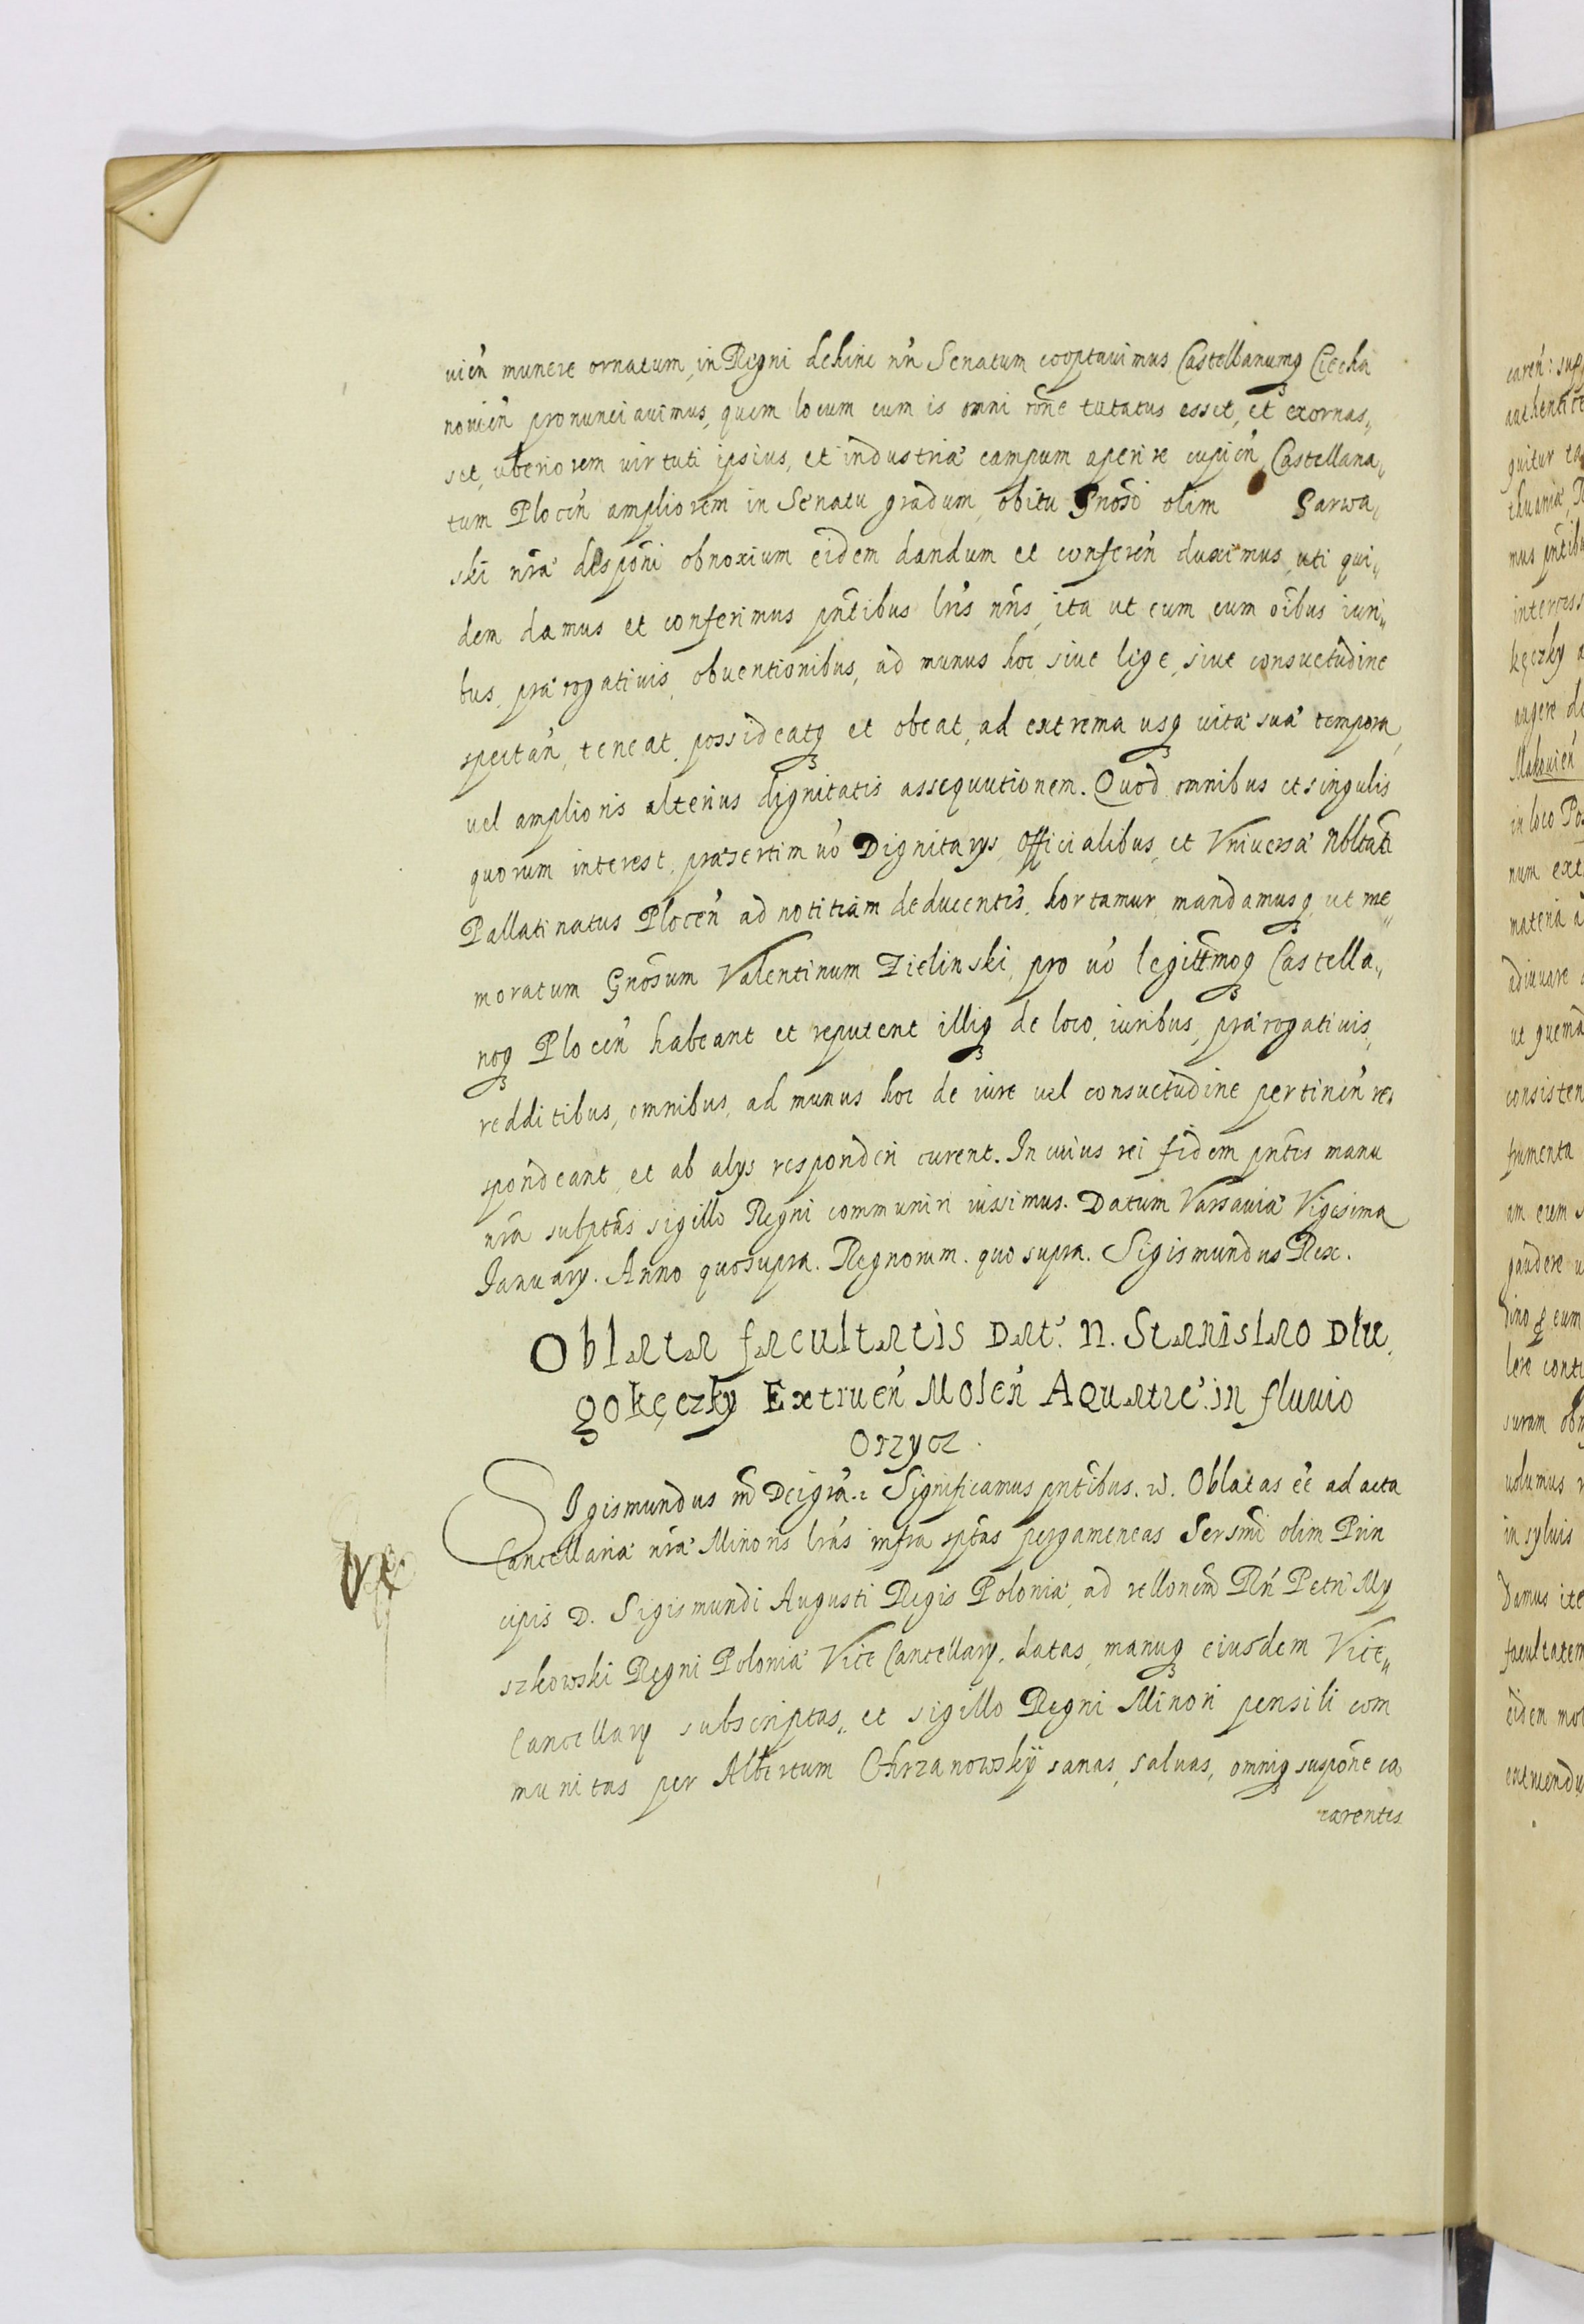 uień munere ornatum, in Regni dehinc nrī Senatum cooptauimus Castellanumq Ciecha
nouień pronunciauimus, quem locum cum is omni rōne tutatus esset, et exornas„
set, vberiorem virtuti ipsius, et industriæ campum aperire cupień Castellana„
tum Plocen̄ ampliorem in Senatu gradum, obitu Gnōsi olim Garwa„
ski nrā dispōni obnoxium eidem dandum et conferen̄ duximus, uti qui„
dem damus et conferimus pn̄tibus lrīs nrīs, ita ut eum cum oībus iuri„
bus, prærogatiuis, obuentionibus, ad munus hoc, siue lege, siue consuetudine
spectan̄, teneat, possideatq et obeat, ad extrema usq uitæ suæ tempora,
uel amplioris alterius dignitatis assequutionem. Quod omnibus et singulis
quorum interest, præsertim uō Dignitarys, Officialibus, et Vniuersæ Nobltati
Pallatinatus Plocen̄ ad notitiam deducentes, hortamur mandamusq ut me„
moratum Gnōsum Valentinum Zielinski, pro uō legittmoq Castella„
noq Plocen̄ habeant et reputent illiq de loco, iuribus, prærogatiuis,
redditibus, omnibus, ad munus hoc de iure uel consuetudine pertinen̄ re„
spondeant, et ab alys responderi curent. In cuius rei fidem pn̄tes manu
nrā subsptas sigillo Regni communiri iussimus. Datum Varsauiæ Vigesima
January. Anno quo supra. Regnorum. quo supra. Sigismundus Rex.
Oblata facultatis Datæ N. Stanislao Dłu„
gokęczky Extruen̄ Molen̄ Aquatic̄. in fluuio
Orzycz.
SIgismundus 3 Dei grā. Significamus pn̄tibus. Oblatas eē ad acta
Cancellariæ nræ Minoris lrās infra sptas pergameneas Sersmi olim Prin
cipis D. Sigismundi Augusti Regis Poloniæ, ad rellonem Rn̄ Petri My
szkowski Regni Poloniæ Vice Cancellary. datas, manuq eiusdem Vice„
Cancellary subscriptas, et sigillo Regni Minori pensili com
munitas per Albertum Chrzanowskÿ sanas, saluas, omniq suspōne ca
carentes